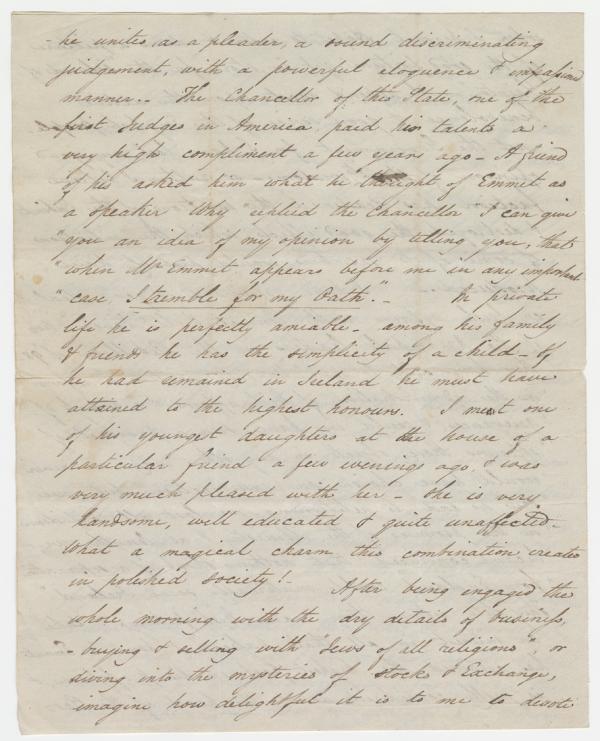 - he unites, as a pleader, a sound discriminating
judgement, with a powerful eloquence & impassioned
manner.- The Chancellor of this State, one of the
first Judges in America paid his talents a
very high compliment a few years ago - A friend
of his asked him what he thought of Emmet as
a speaker "Why" replied the Chancellor "I can give
"you an idea of my opinion by telling you, that
"when Mr Emmet appears before me in any important
"case, I tremble for my Oath". - In private
life he is perfectly amiable - among his family
& friends he has the simplicity of a child - If
he had remained in Ireland he must have
attained to the highest honours. I met one
of his youngest daughters at the house of a
particular friend a few evenings ago, & was
very much pleased with her - She is very
handsome, well educated & quite unaffected -
What a magical charm this combination creates
in polished society! - After being engaged the
whole morning with the dry details of business,
- buying & selling with "Jews of all religions", or
diving into the mysteries of Stocks & Exchange,
imagine how delightful it is to me to devote